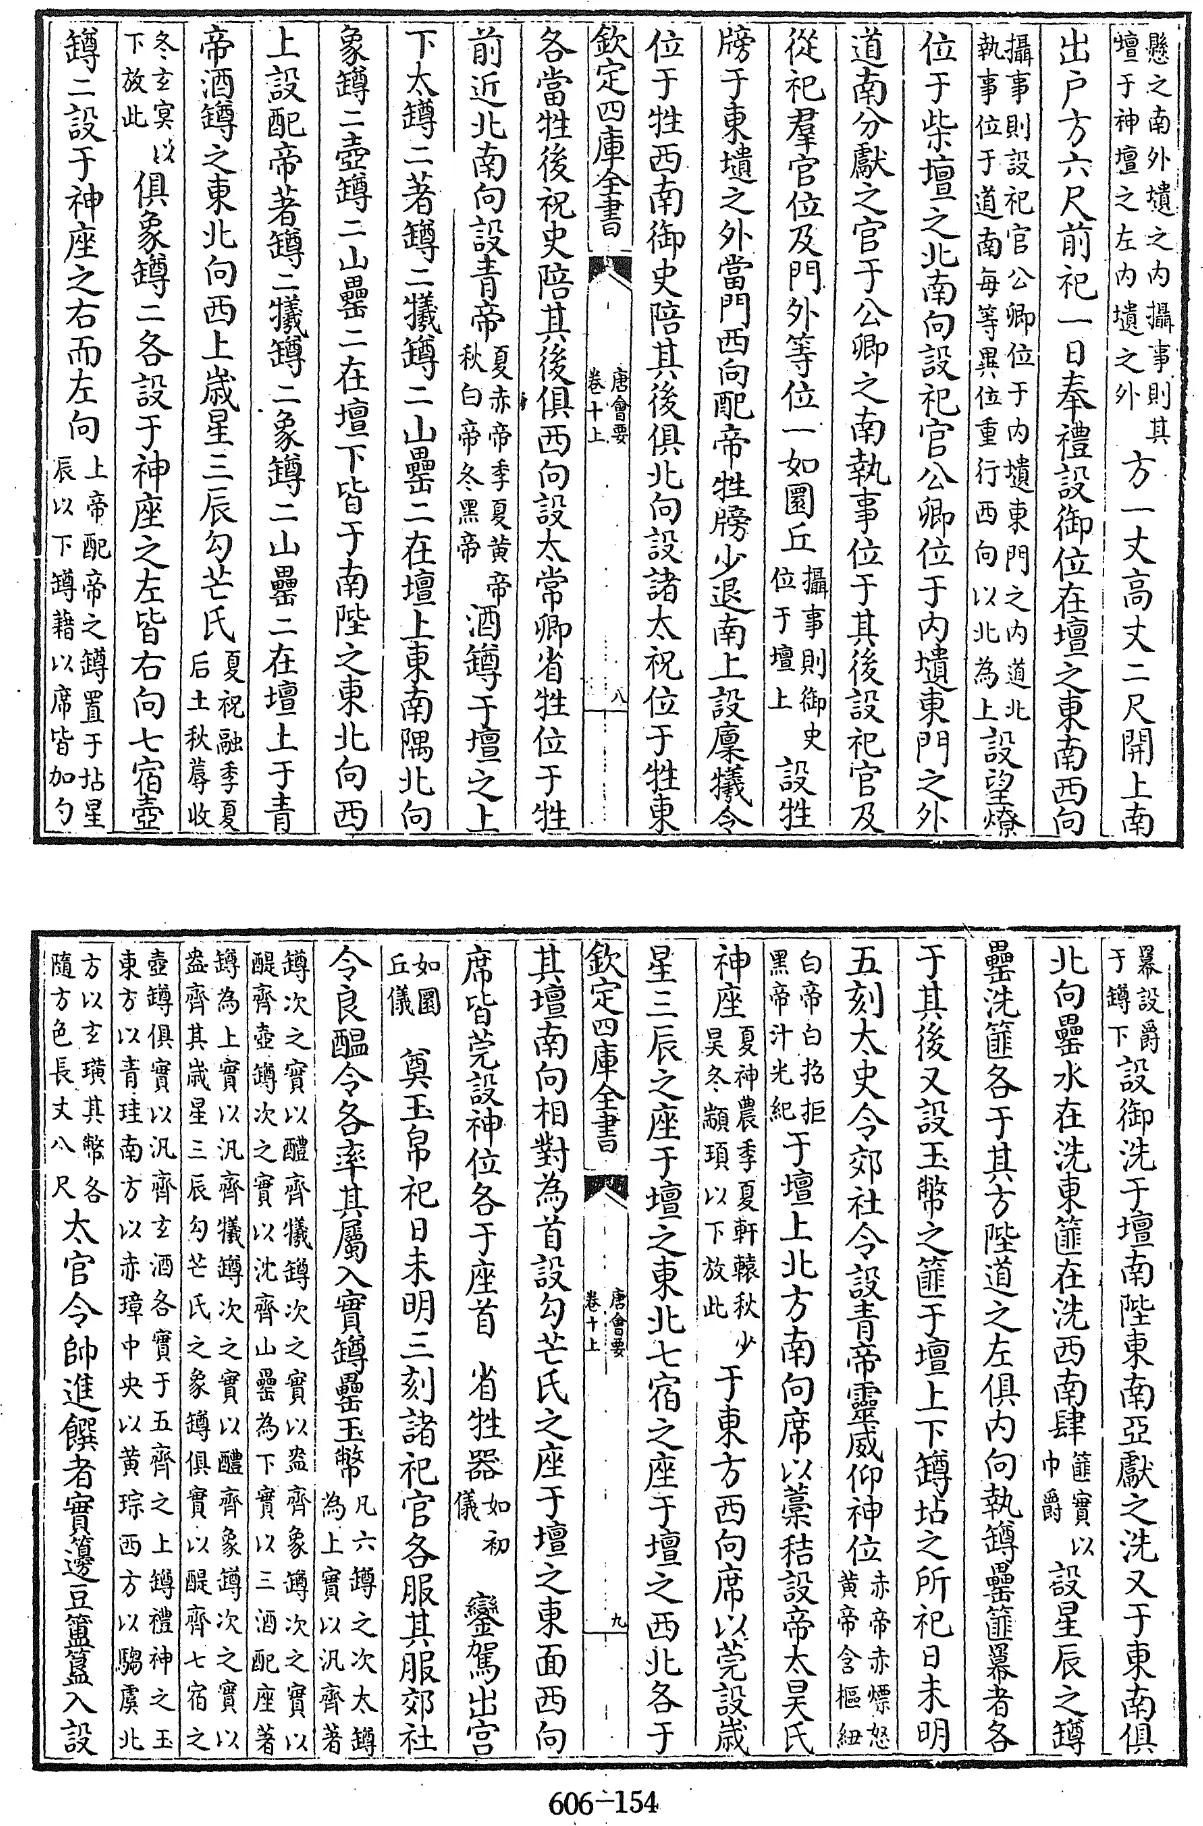 懸之南外壝之内攝事則其
壇于神壇之左内壝之外
方一丈高丈二尺開上南
出戶方六尺前祀一日奉禮設御位在壇之東南西向
攝事則設祀官公卿位于内壝東門之内道北
執事位于道南每等異位重行西向以北為上
設望燎
位于柴壇之北南向設祀官公卿位于内壝東門之外
道南分獻之官于公卿之南執事位于其後設祀官及
從祀羣官位及門外等位一如圜丘
攝事則御史
位于壇上
設牲
牓于東壝之外當門西向配帝牲牓少退南上設廩犧令
位于牲西南御史陪其後俱北向設諸太祝位于牲東
欽定四庫全書
唐會要
卷十上
八
各當牲後祝史陪其後俱西向設太常卿省牲位于牲
前近北南向設青帝
夏赤帝季夏黄帝
秋白帝冬黑帝
酒罇于壇之上
下太罇二著罇二犧罇二山罍二在壇上東南隅北向
象罇二壺罇二山罍二在壇下皆于南陛之東北向西
上設配帝著罇二犧罇二象罇二山罍二在壇上于青
帝酒罇之東北向西上歲星三辰勾芒氏
夏祝融季夏
后土秋蓐收
冬玄冥以
下放此
俱象罇二各設于神座之左皆右向七宿壺
罇二設于神座之右而左向
上帝配帝之罇置于坫星
辰以下罇藉以席皆加勺
羃設爵
于罇下
設御洗于壇南陛東南亞獻之洗又于東南俱
北向罍水在洗東篚在洗西南肆
篚實以
巾爵
設星辰之罇
罍洗篚各于其方陛道之左俱内向執罇罍篚羃者各
于其後又設玉幣之篚于壇上下罇坫之所祀日未明
五刻太史令郊社令設青帝靈威仰神位
赤帝赤熛怒
黄帝含樞紐
白帝白招拒
黑帝汁光紀
于壇上北方南向席以藁秸設帝太昊氏
神座
夏神農季夏軒轅秋少
昊冬顓頊以下放此
于東方西向席以莞設歲
星三辰之座于壇之東北七宿之座于壇之西北各于
欽定四庫全書
唐會要
卷十上
九
其壇南向相對為首設勾芒氏之座于壇之東面西向
席皆莞設神位各于座首
省牲器
如初
儀
鑾駕出宮
如圜
丘儀
奠玉帛祀日未明三刻諸祀官各服其服郊社
令良醞令各率其屬入實罇罍玉幣
凡六罇之次太罇
為上實以汎齊著
罇次之實以醴齊犧罇次之實以盎齊象罇次之實以
醍齊壺罇次之實以沈齊山罍為下實以三酒配座著
罇為上實以汎齊犧罇次之實以醴齊象罇次之實以
盎齊其歲星三辰勾芒氏之象罇俱實以醍齊七宿之
壺罇俱實以汎齊玄酒各實于五齊之上罇禮神之玉
東方以青珪南方以赤璋中央以黄琮西方以騶虞北
方以玄璜其幣各
隨方色長丈八尺
太官令帥進饌者實籩豆簠簋入設
606-154